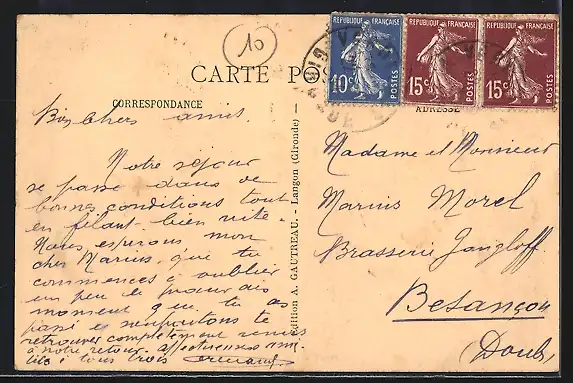 10
CARTE POS
CORRESPONDANCE
ADRESSE
REPUBLIQUE FRANÇAISE
10c
POSTES
REPUBLIQUE FRANÇAISE
15c
POSTES
REPUBLIQUE FRANÇAISE
15c
POSTES
Edition A. GAUTREAU. - Langon (Gironde)
Bien chers amis.
Notre séjour
se passe dans de
bonnes conditions tout
en filant bien vite.
Nous espérons mon
cher Marius, que tu
commences à oublier
un peu le mauvais
moment que tu as
passé et
retrouver complètement remis
à notre retour. Affectueuses ami
tiés à tous trois
Madame et Monsieur
Marius Morel
Brasserie Jangloff
Besançon
(Doubs)